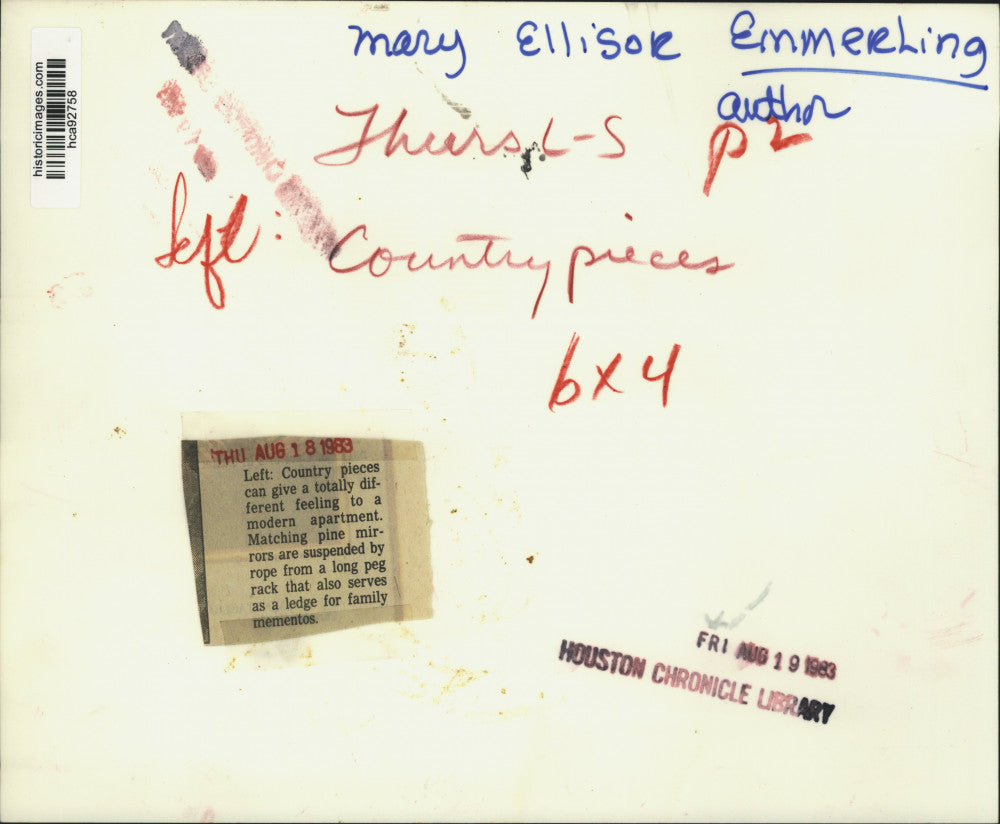 historicimages.com
hca92758
Mary Ellisor Emmerling
author
Thurs L-S p2
left: Country pieces
6x4
THU AUG 18 1983
Left: Country pieces
can give a totally dif-
ferent feeling to a
modern apartment.
Matching pine mir-
rors are suspended by
rope from a long peg
rack that also serves
as a ledge for family
mementos.
FRI AUG 19 1983
HOUSTON CHRONICLE LIBRARY